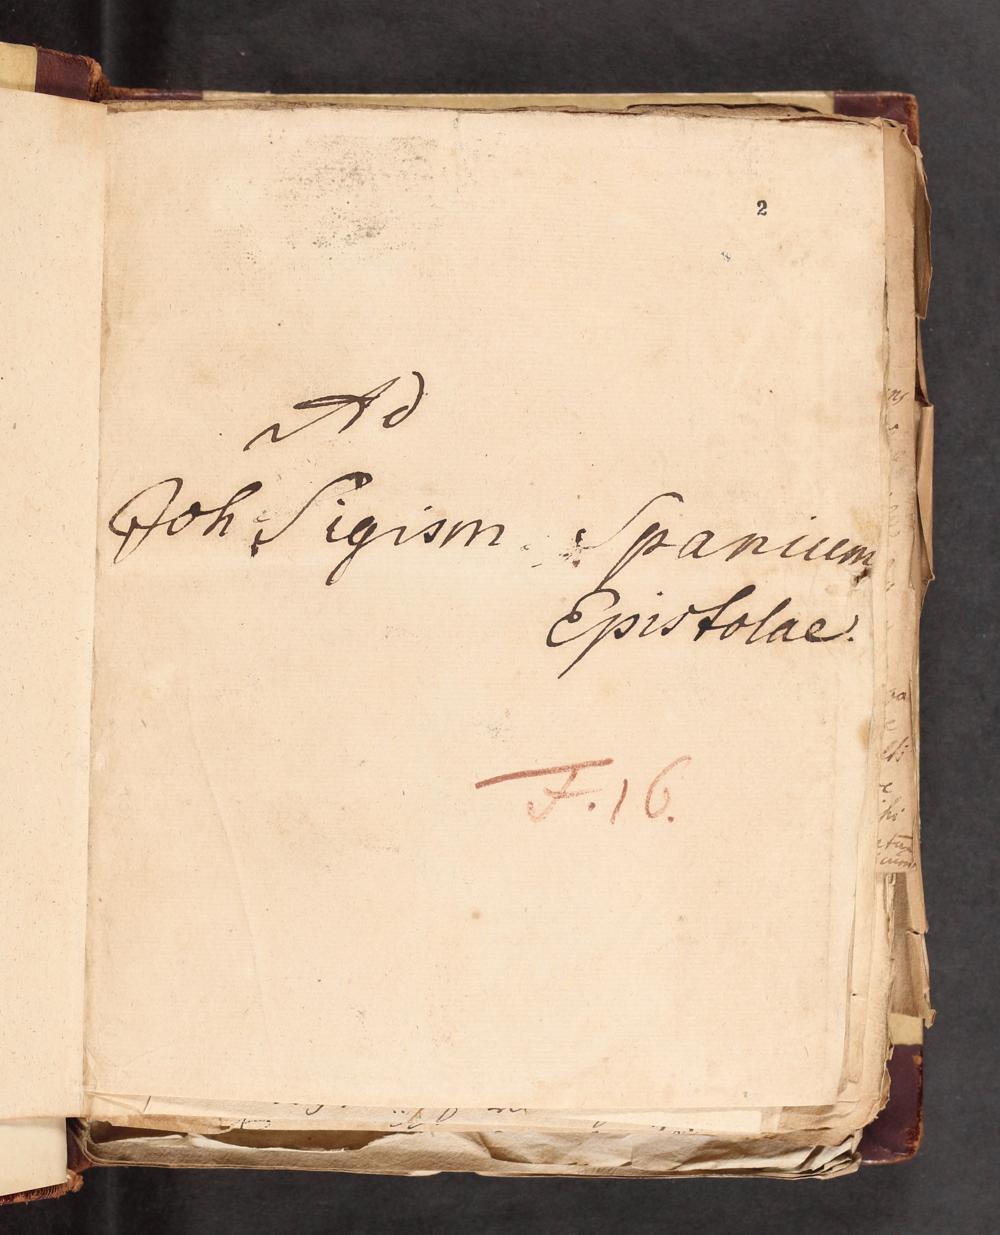 2
Ad
Joh Sigism Spanium
Epistolae.
F. 16.